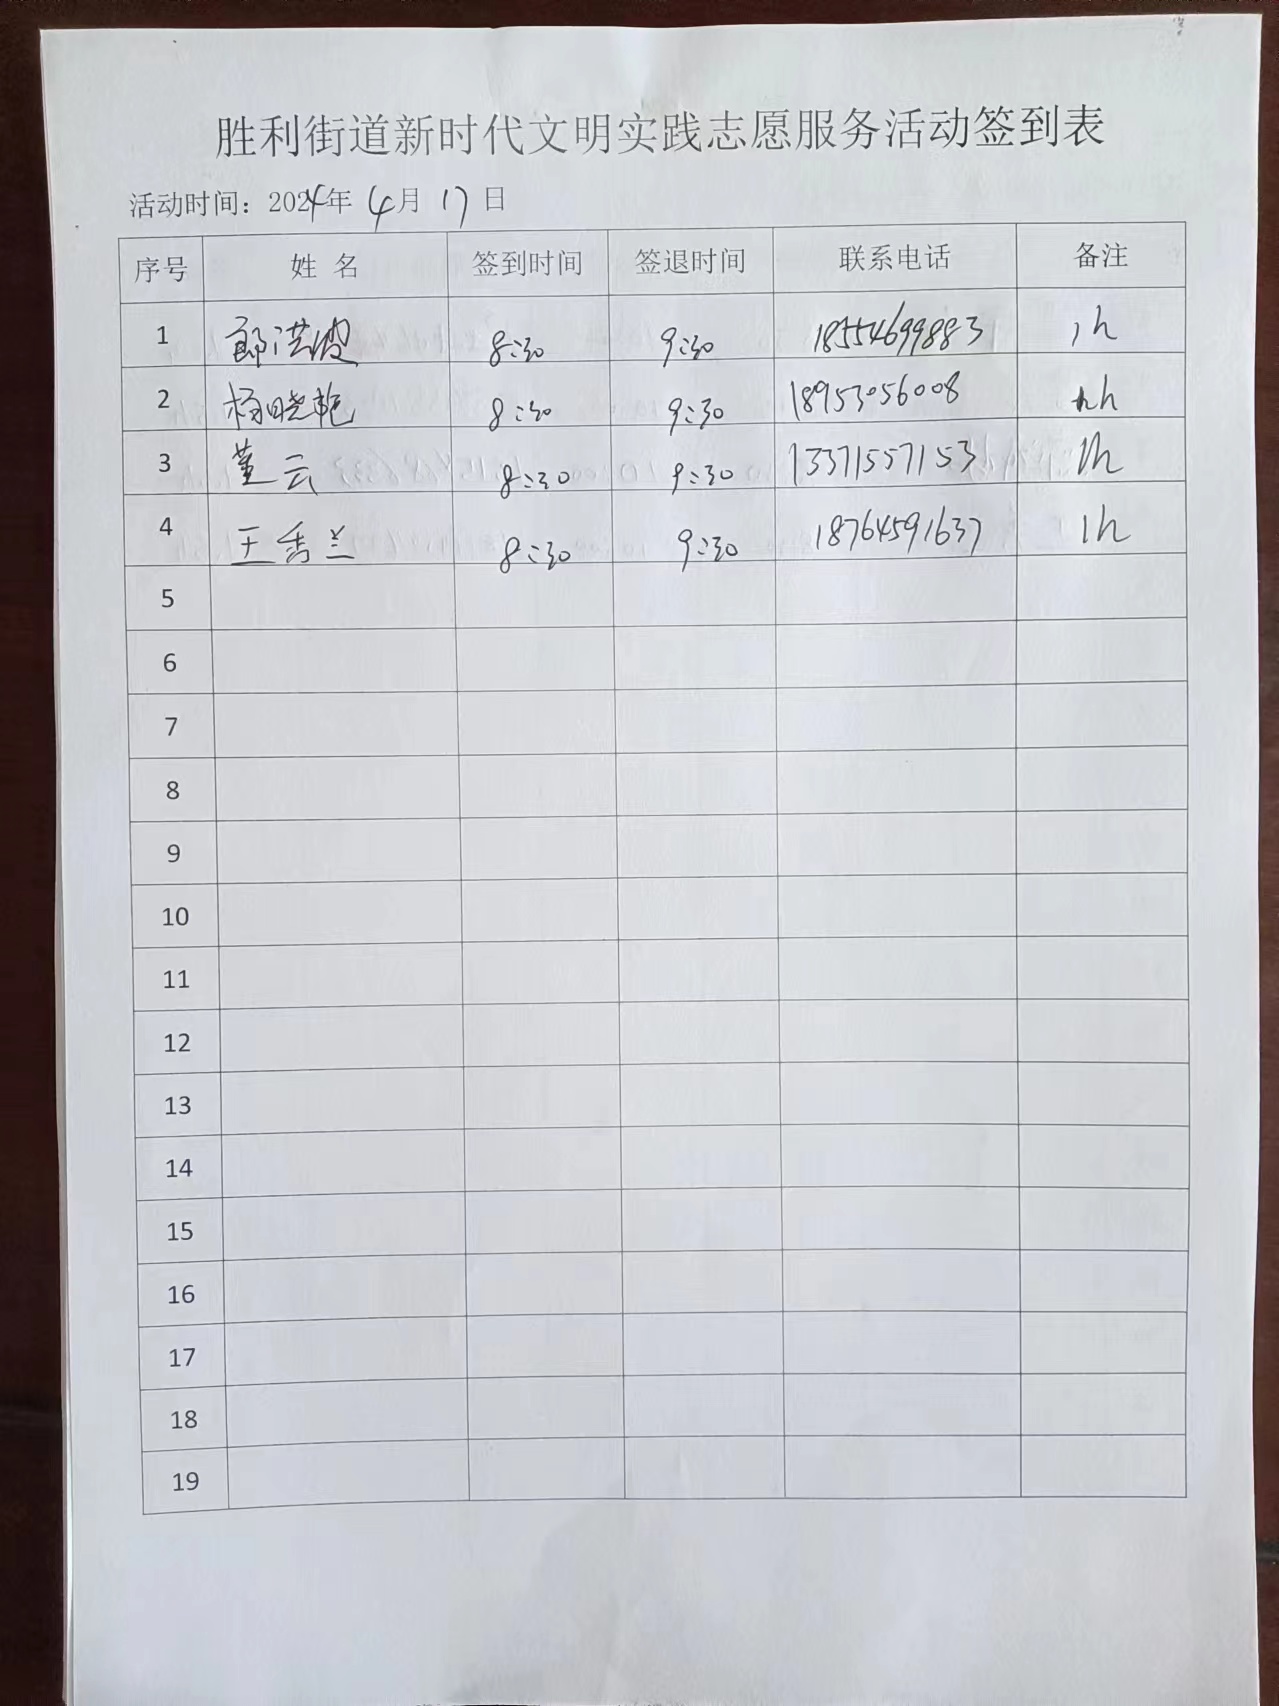 胜利街道新时代文明实践志愿服务活动签到表
活动时间：2024年 4月 17日
序号 姓 名 签到时间 签退时间 联系电话 备注
1 郎洪波 8:30 9:30 18554699883 1h
2 杨晓艳 8:30 9:30 18953056008 1h
3 董云 8:30 9:30 13371557153 1h
4 王秀兰 8:30 9:30 18764591637 1h
5
6
7
8
9
10
11
12
13
14
15
16
17
18
19